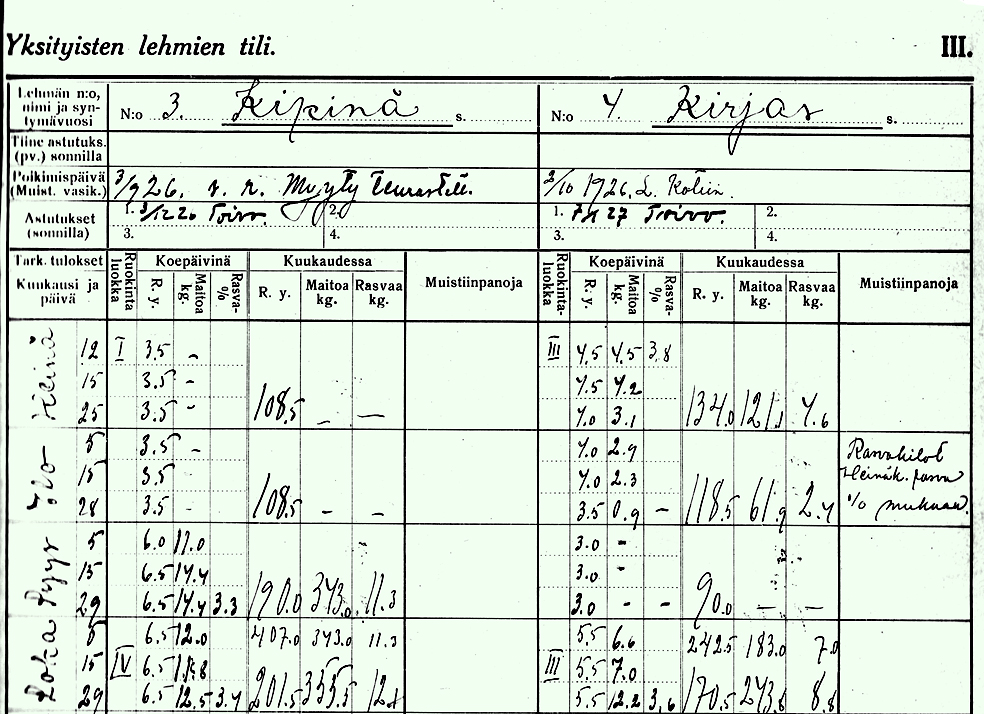 Yksityisten lehmien tili. III.
Lehmän n:o, nimi ja syntymävuosi N:o 3. Kipinä s. N:o 4. Kirjas s.
Tiine astutuks. (pv.) sonnilla
Poikimispäivä (Muist. vasik.) 3/9 26. v. r. Myyty Teurastell. 2/10 1926. L. Kotiin.
Astutukset (sonnilla) 1. Toivo. 2. 1. 27 Toivo. 2.
3. 4. 3. 4.
Tark. tulokset Ruokintaluokka Koepäivinä Kuukaudessa Muistiinpanoja Ruokintaluokka Koepäivinä Kuukaudessa Muistiinpanoja
Kuukausi ja päivä R. y. Maitoa kg. Rasva-% R. y. Maitoa kg. Rasvaa kg. R. y. Maitoa kg. Rasva-% R. y. Maitoa kg. Rasvaa kg.
Heinä 12 I 3.5 - III 4.5 4.5 3.8
15 3.5 - 4.5 4.2
25 3.5 - 108.5 — — 4.0 3.1 134.0 121.1 4.6
Elo 5 3.5 - 4.0 2.9 Rasvakilot
15 3.5 4.0 2.3 Heinäk. rasva
28 3.5 - 108.5 - - 3.5 0.9 - 118.5 61.9 2.4 % mukaan.
Syys 5 6.0 11.0 3.0 -
15 6.5 14.4 3.0 -
29 6.5 14.4 3.3 190.0 343.0 11.3 3.0 - - 90.0 — —
Loka 5 6.5 12.0 407.0 343.0 11.3 5.5 6.6 242.5 183.0 7.0
15 IV 6.5 11.8 III 5.5 7.0
29 6.5 12.5 3.4 201.5 355.5 12.1 5.5 12.2 3.6 170.5 243.8 8.8